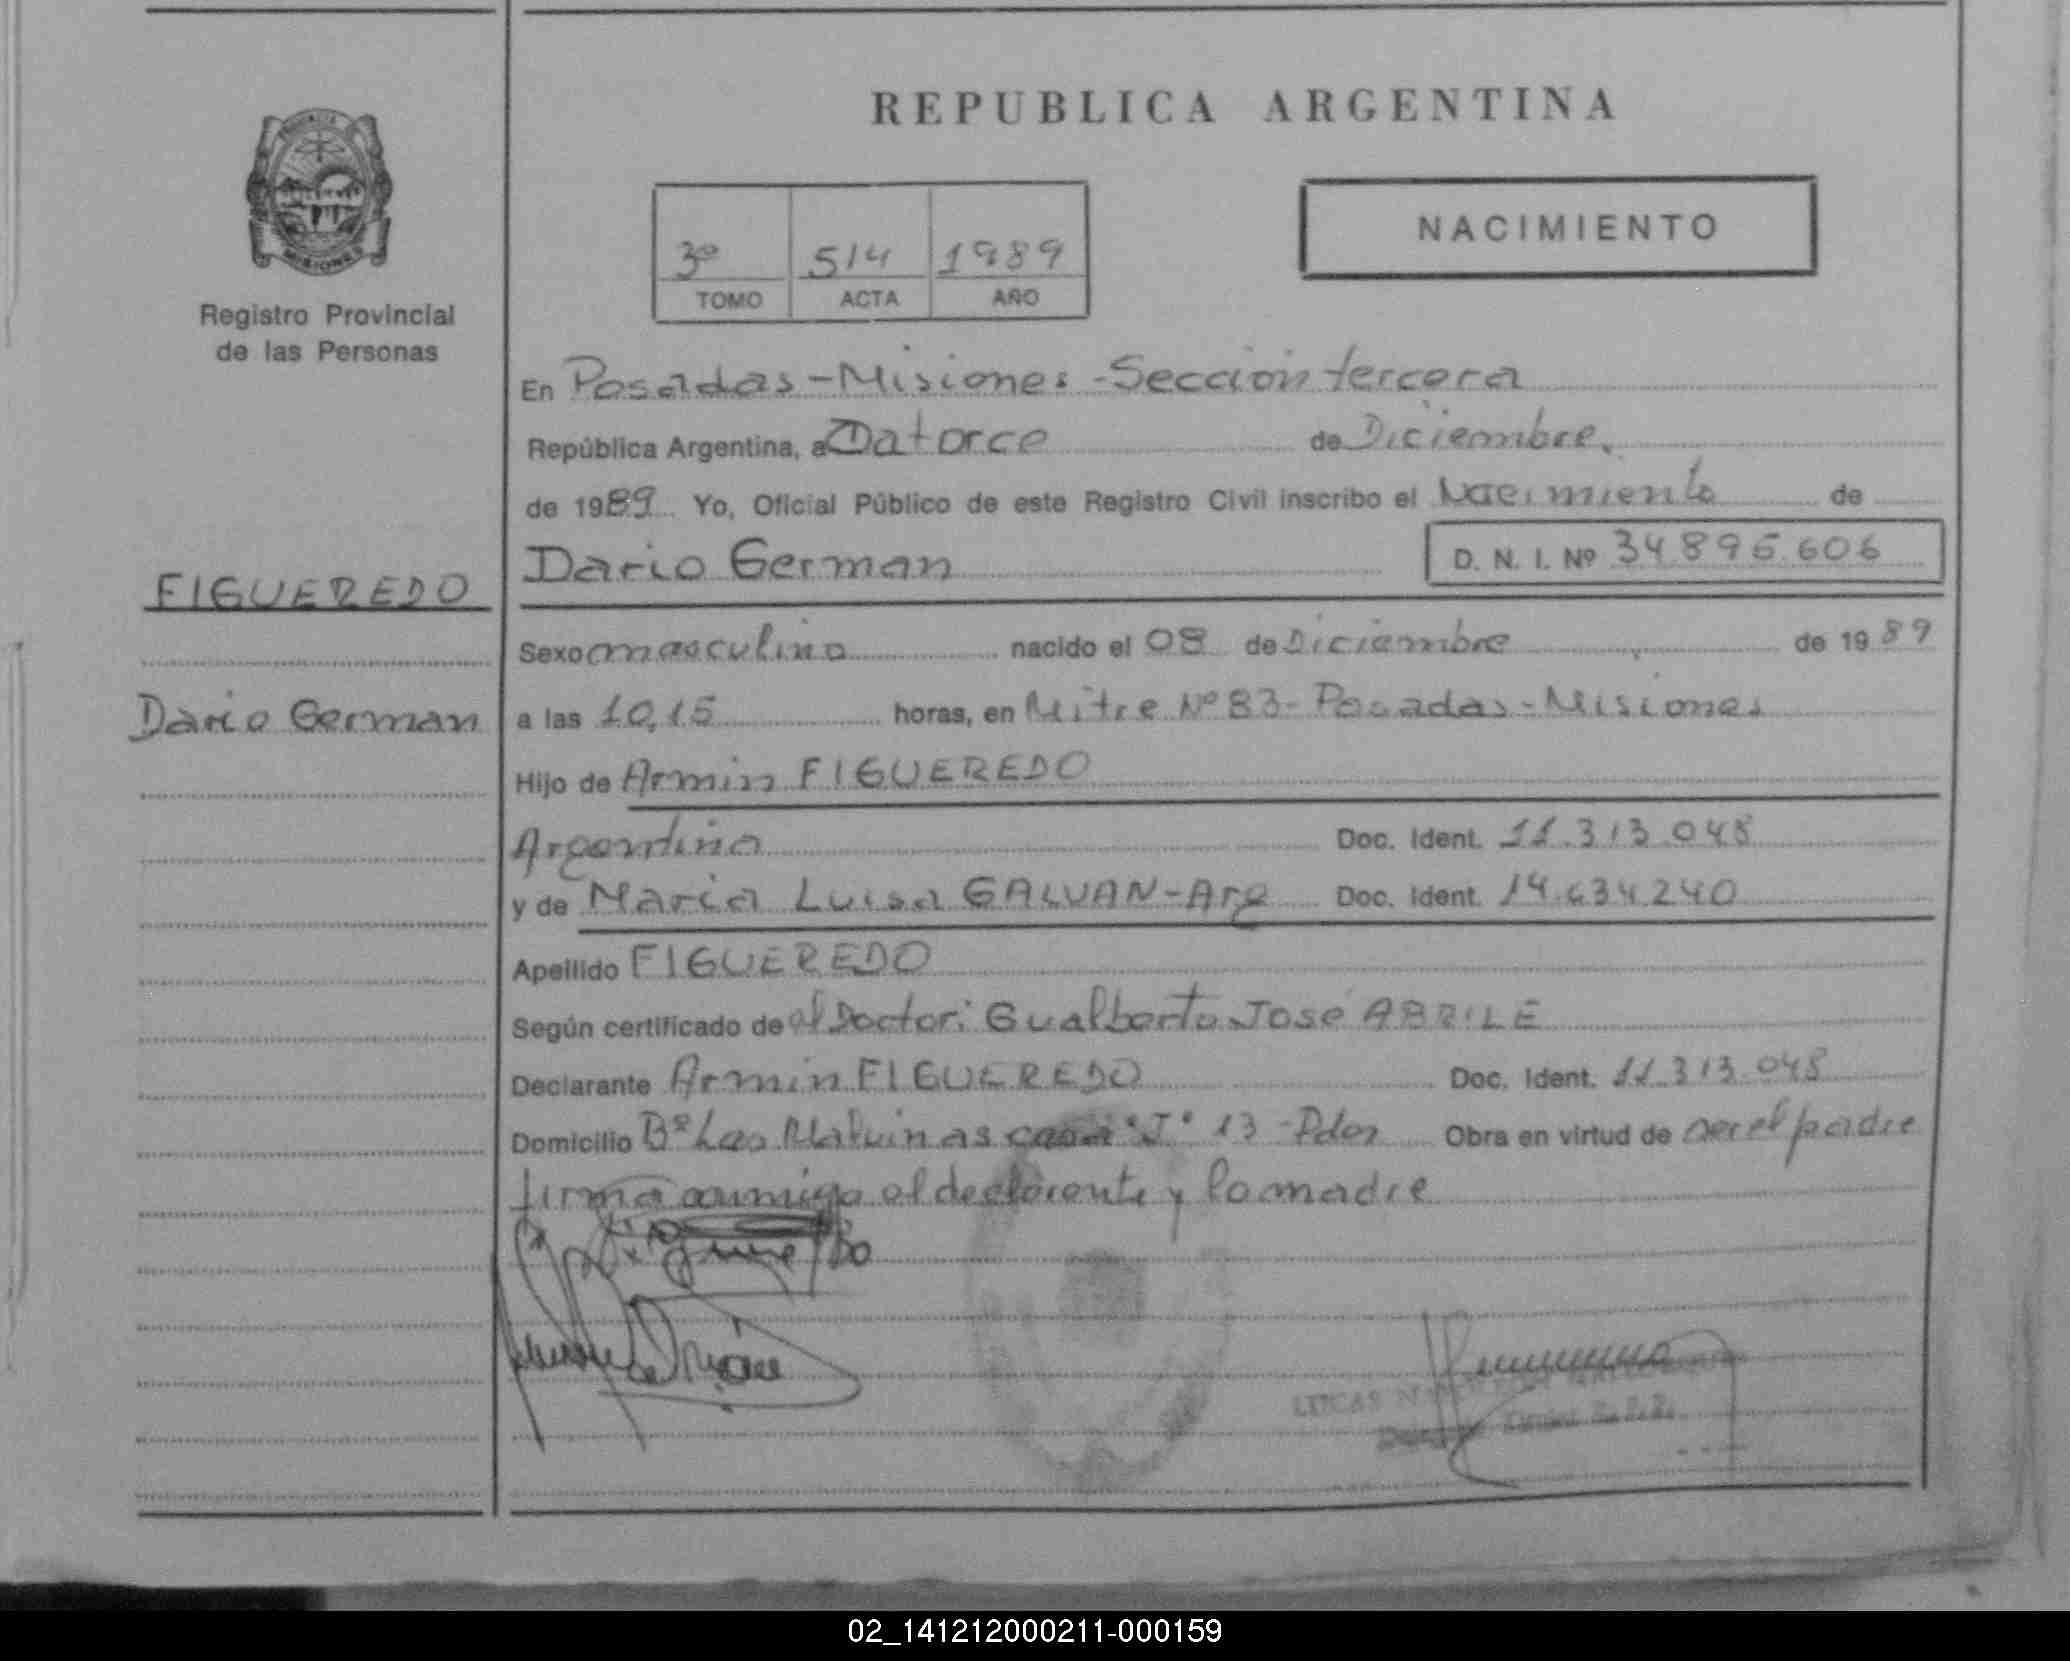 REPUBLICA ARGENTINA
NACIMIENTO
3º 514 1989
TOMO ACTA AÑO
MISIONES
Registro Provincial
de las Personas
En Posadas - Misiones - Sección tercera
República Argentina, a Catorce de Diciembre.
de 1989 Yo, Oficial Público de este Registro Civil inscribo el Nacimiento de
FIGUEREDO
Dario German D. N. I. Nº 34.896.606
Sexo masculino nacido el 08 de Diciembre de 1989
Dario German
a las 10,15 horas, en Mitre Nº 83 - Posadas - Misiones
Hijo de Armin FIGUEREDO
Argentino Doc. Ident. 11.313.048
y de Maria Luisa GALVAN - Arg Doc. Ident. 14.634.240
Apellido FIGUEREDO
Según certificado de el Doctor: Gualberto José ABRILE
Declarante Armin FIGUEREDO Doc. Ident. 11.313.048
Domicilio Bº Las Malvinas casa "J" 13 - Pdas Obra en virtud de ser el padre
firma conmigo el declarante y la madre
LUCAS
02_141212000211-000159